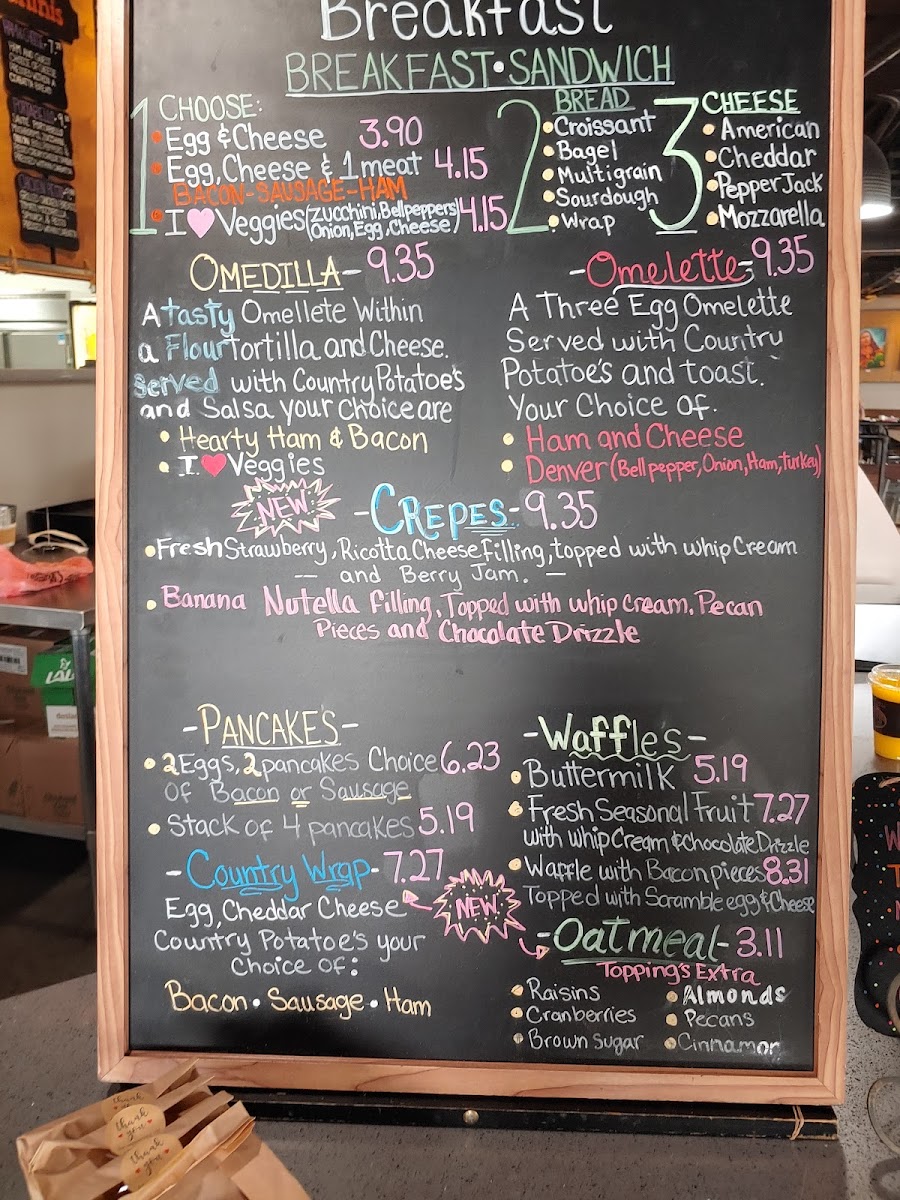 Breakfast
BREAKFAST • SANDWICH
1 CHOOSE:
• Egg & Cheese 3.90
• Egg, Cheese & 1 meat 4.15
BACON - SAUSAGE - HAM
• I ♥ Veggies (zucchini, Bellpeppers 4.15
Onion, Egg, Cheese)
2 BREAD
• Croissant
• Bagel
• Multigrain
• Sourdough
• Wrap
3 CHEESE
• American
• Cheddar
• Pepper Jack
• Mozzarella
OMEDILLA - 9.35
A tasty Omellete Within
a Flour tortilla and Cheese.
served with Country Potatoe's
and Salsa your choice are
• Hearty Ham & Bacon
• I ♥ Veggies
- Omelette - 9.35
A Three Egg Omelette
Served with Country
Potatoe's and toast.
Your Choice of.
• Ham and Cheese
• Denver (Bell pepper, Onion, Ham, Turkey)
NEW
- CREPES - 9.35
• Fresh Strawberry, Ricotta Cheese filling, topped with whip Cream
— and Berry Jam. —
• Banana Nutella filling, Topped with whip cream, Pecan
Pieces and Chocolate Drizzle
- PANCAKES -
• 2 Eggs, 2 pancakes Choice 6.23
of Bacon or Sausage
• Stack of 4 pancakes 5.19
- Country Wrap - 7.27
Egg, Cheddar Cheese
Country Potatoe's your
Choice of:
Bacon • Sausage • Ham
NEW
- Waffle's -
• Buttermilk 5.19
• Fresh Seasonal Fruit 7.27
with whip Cream & Chocolate Drizzle
• Waffle with Bacon pieces 8.31
Topped with Scramble egg & Cheese
- Oatmeal - 3.11
Topping's Extra
• Raisins
• Cranberries
• Brown Sugar
• Almonds
• Pecans
• Cinnamon
thank you
thank you
thank you